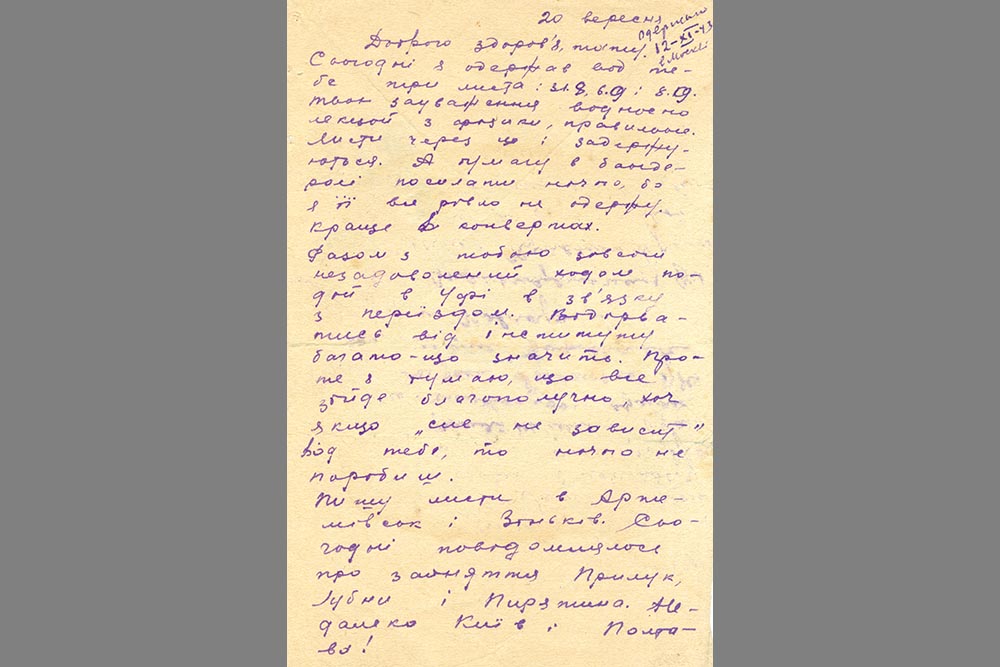 20 вересня
Одержано
12-XI-43
в Москві
Доброго здоров'я, тату!
Сьогодні я одержав від те-
бе три листа: 31.8, 6.9 і 8.9.
твої зауваження відносно
лекцій з фізики, правильні.
Листи через це і задержу-
ються. А тумагу в банде-
ролі посилати нічого, бо
я її все рівно не одержу.
краще в конвертах.
Разом з тобою зовсім
незадоволений ходом по-
дій в Уфі в зв'язку
з переїздом. Відірва-
тись від інституту
багато-що значить. Про-
те я думаю, що все
зійде благополучно, хоч
якщо „сие не зависит"
від тебе, то нічого не
поробиш.
Пишу листи в Арте-
мівськ і Зіньків. Сьо-
годні повідомлялося
про зайняття Прилук,
Лубни і Пирятина. Не-
далеко Київ і Полта-
ва!